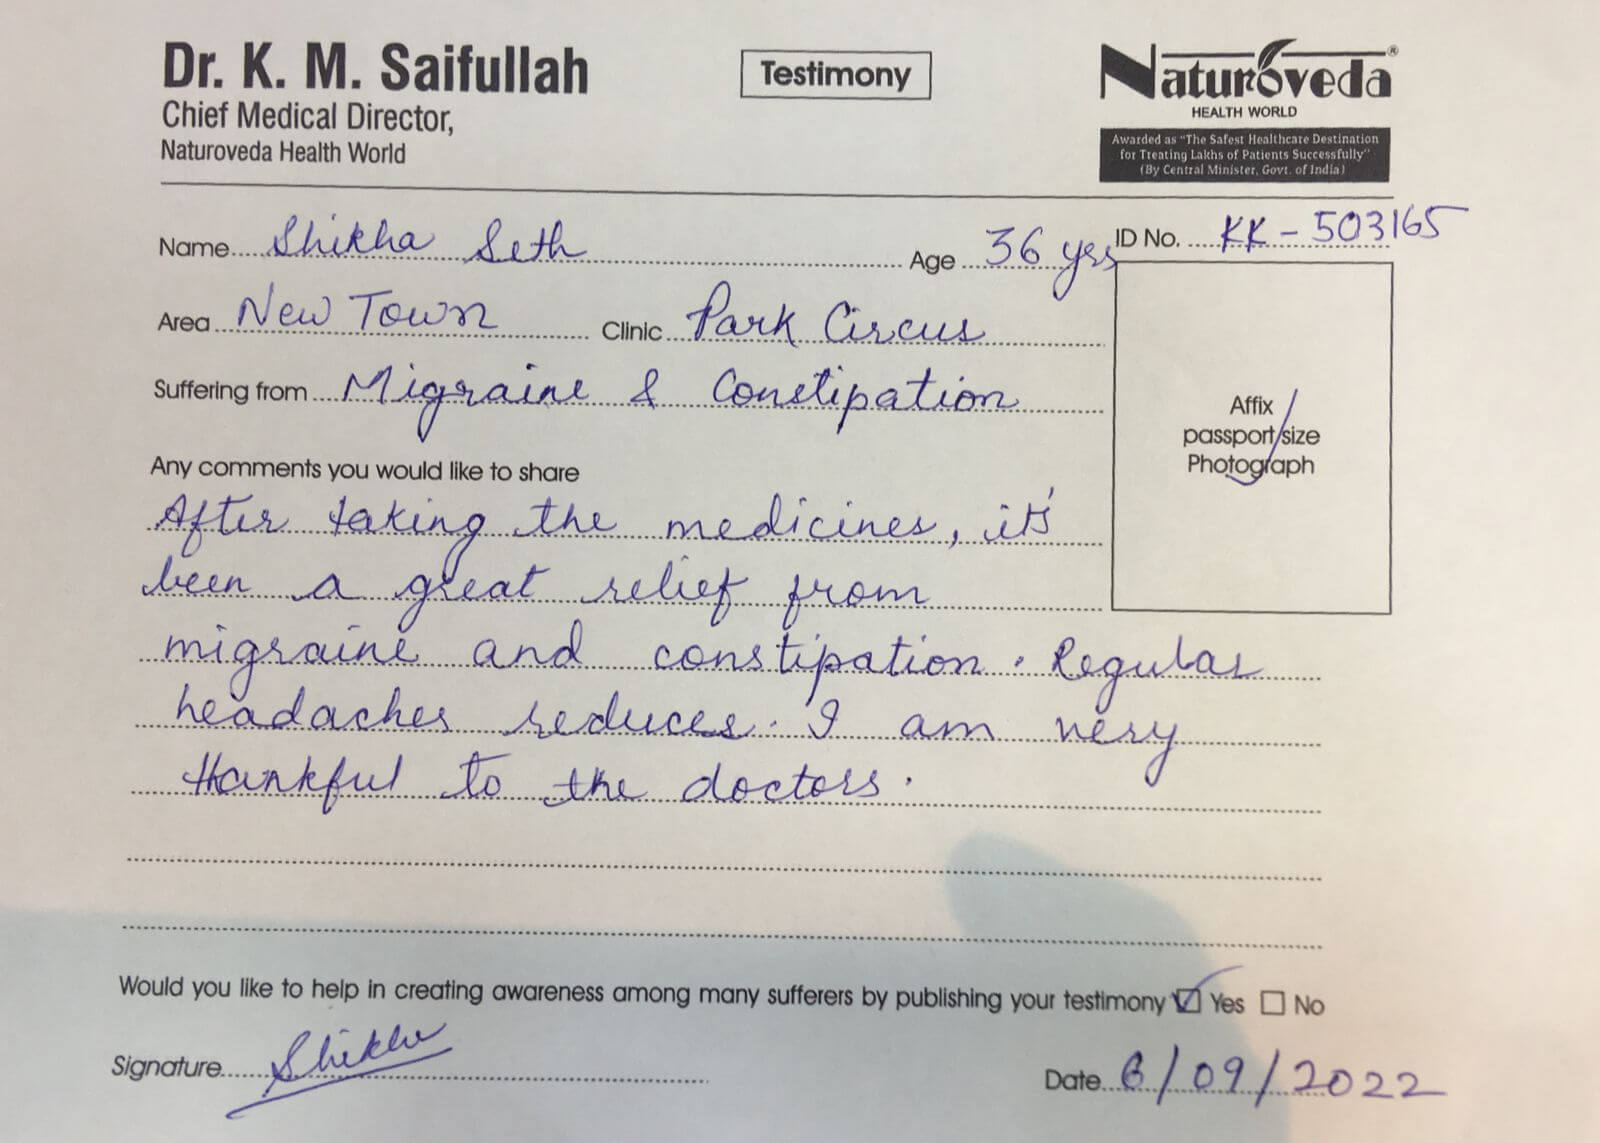 Dr. K. M. Saifullah
Chief Medical Director,
Naturoveda Health World
Testimony
Naturoveda®
HEALTH WORLD
Awarded as "The Safest Healthcare Destination
for Treating Lakhs of Patients Successfully"
(By Central Minister, Govt. of India)
Name Shikha Seth Age 36 yrs ID No. KK - 503165
Area New Town Clinic Park Circus
Suffering from Migraine & Constipation
Affix
passport size
Photograph
Any comments you would like to share
After taking the medicines, it's
been a great relief from
migraine and constipation. Regular
headaches reduces. I am very
thankful to the doctors.
Would you like to help in creating awareness among many sufferers by publishing your testimony ☑ Yes ☐ No
Signature Shikha
Date 6/09/2022